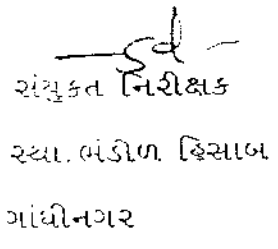 સંયુકત નિરીક્ષક
સ્થા. ભંડોળ હિસાબ
ગાંધીનગર